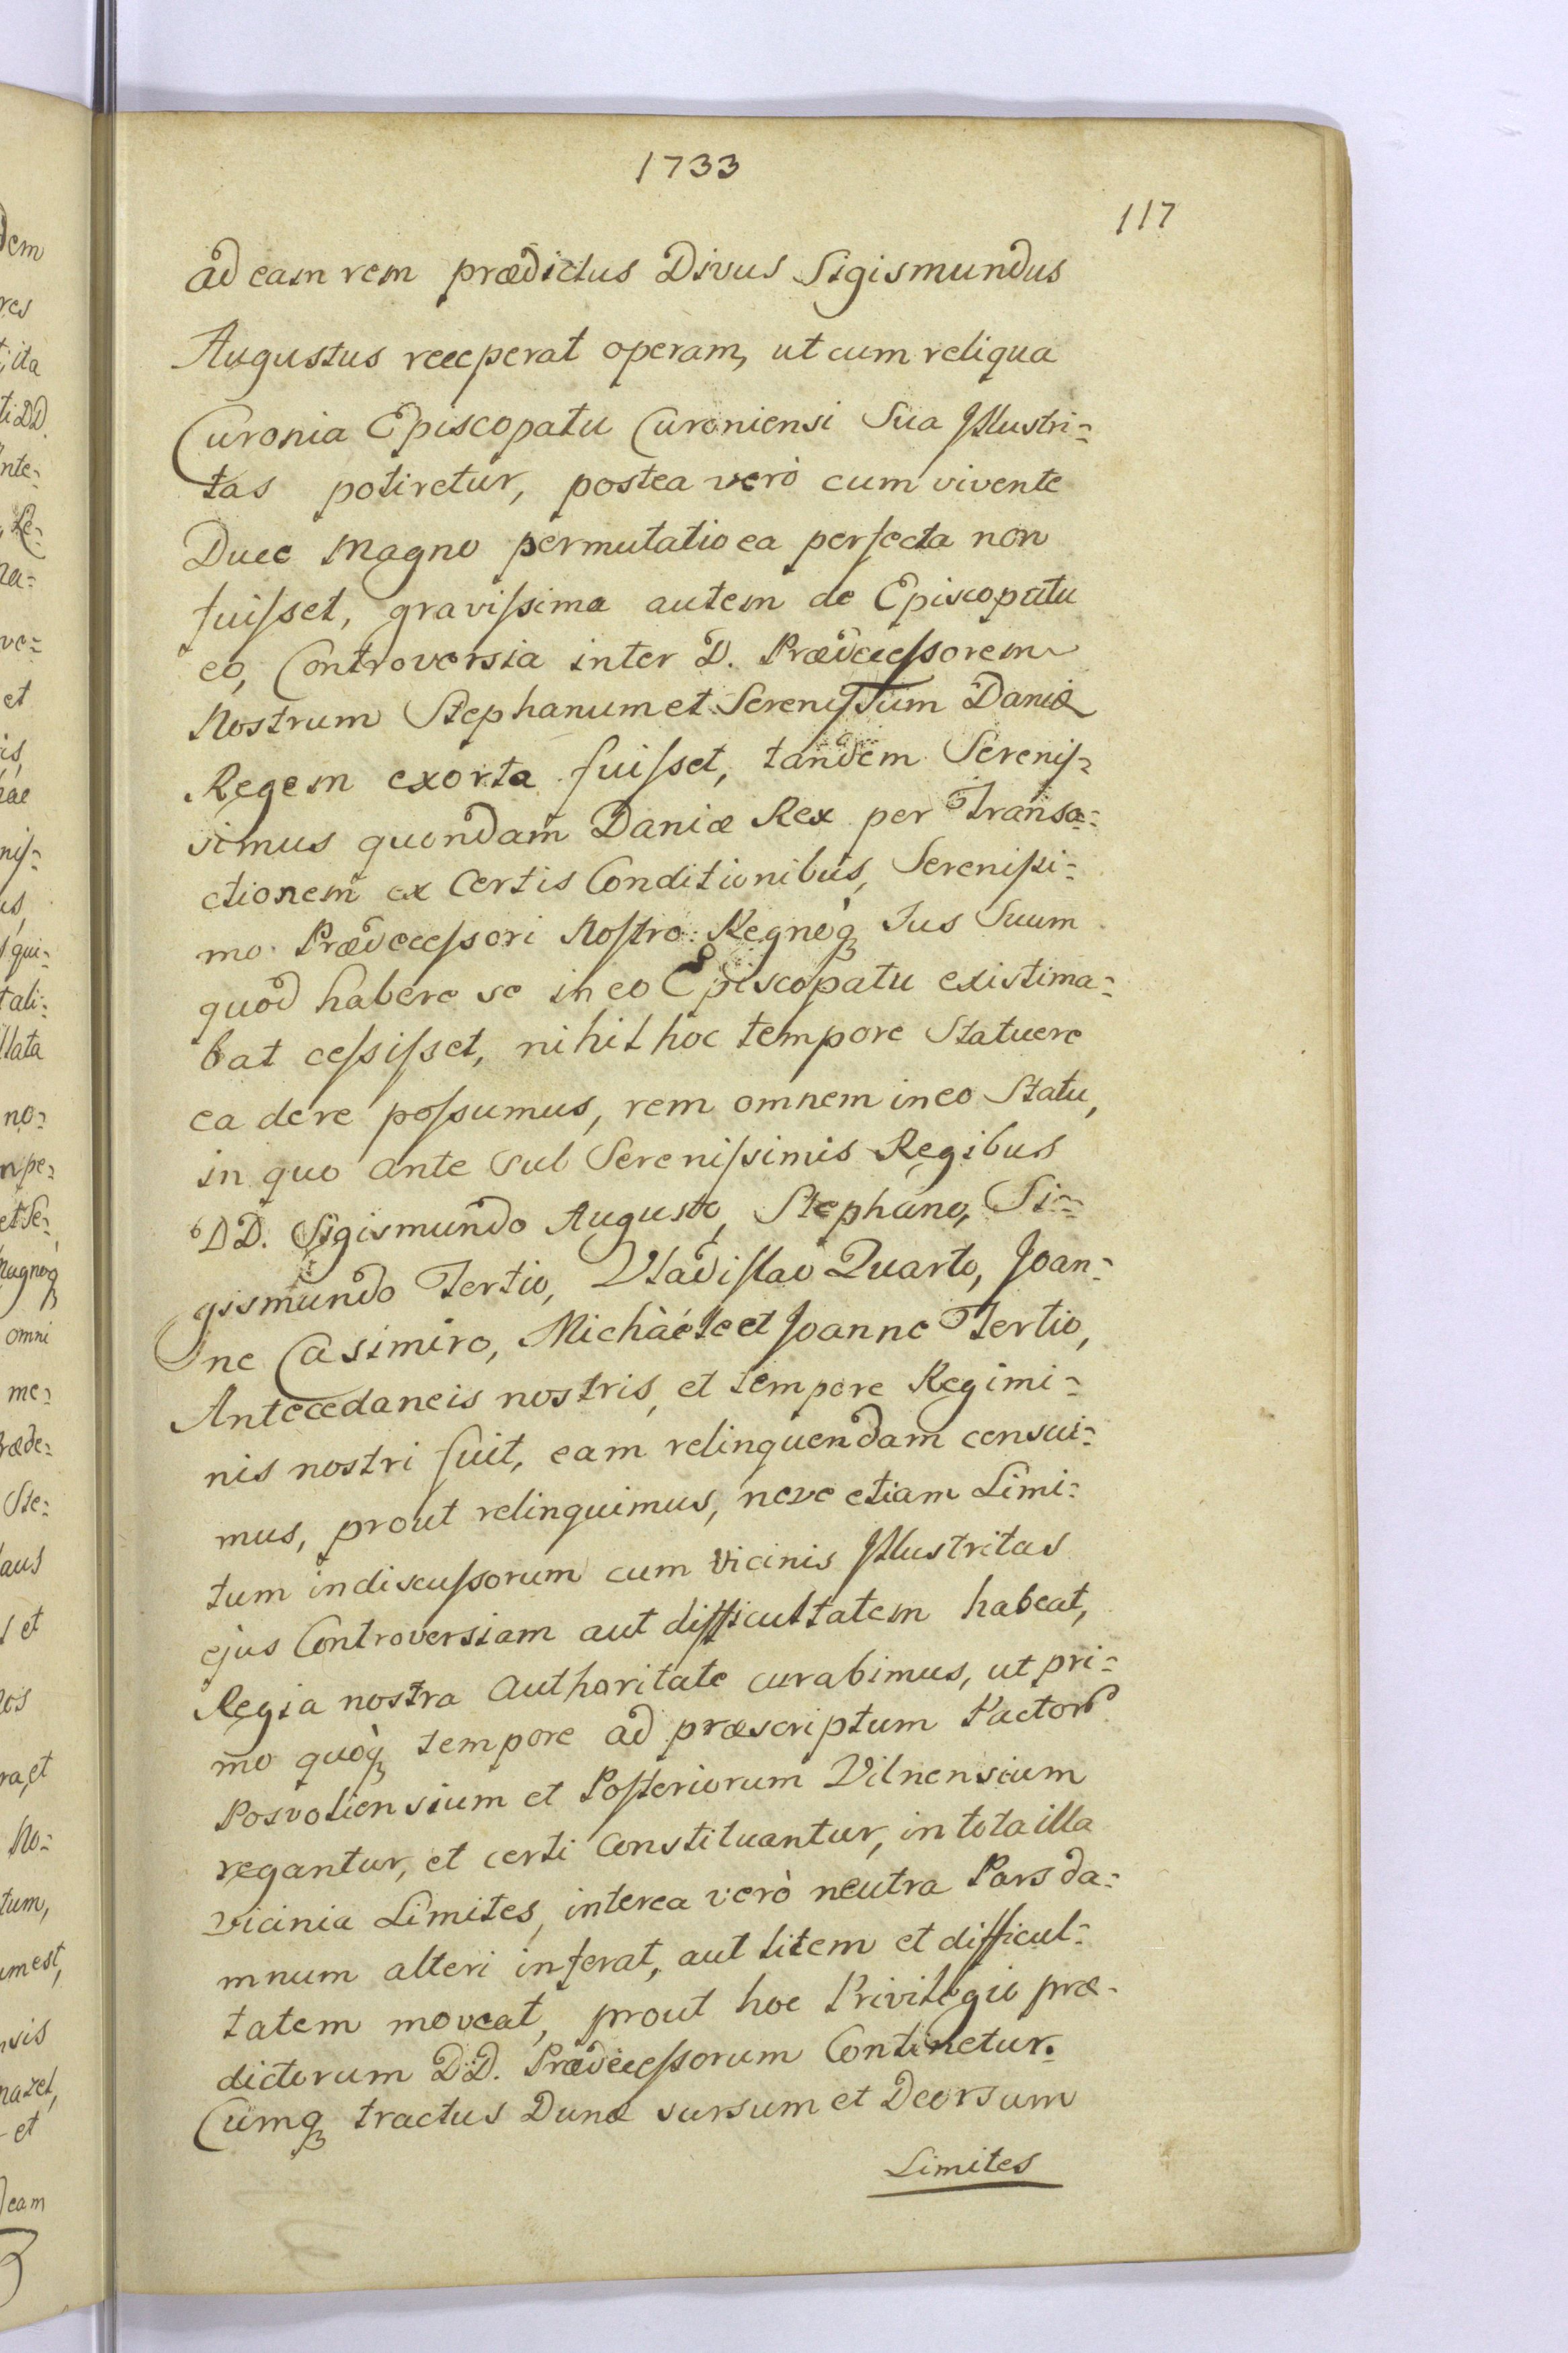 1733
117
ad eam rem prædictus Divus Sigismundus
Augustus receperat operam, ut cum reliqua
Curonia Episcopatu Curoniensi Sua Illustri=
tas potiretur, postea verò cum vivente
Duce Magno permutatio ea perfecta non
fuisset, gravissima autem de Episcopatu
eo, Controversia inter D. Prædecessorem
Nostrum Stephanum et Serenissum Daniæ
Regem exorta fuisset, tandem Serenis=
simus quondam Daniæ Rex per Transa=
ctionem ex Certis Conditionibus, Serenissi=
mo Prædecessori Nostro Regnoq̀ Jus Suum
quod habere se in eo Episcopatu existima=
bat cessisset, nihil hoc tempore Statuere
ea de re possumus, rem omnem in eo Statu,
in quo ante sub Serenissimis Regibus
DD. Sigismundo Augusto, Stephano, Si=
gismundo Tertio, Vladislao Quarto, Joan=
ne Casimiro, Michàéle et Joanne Tertio,
Antecedaneis nostris, et tempore Regimi=
nis nostri fuit, eam relinquendam censui=
mus, prout relinquimus, neve etiam Limi=
tum indiscussorum cum vicinis Illustritas
ejus Controversiam aut difficultatem habeat,
Regia nostra Authoritate curabimus, ut pri=
mo quoq̀ tempore ad præscriptum Pactor
Posvoliensium et Posteriorum Vilnensium
regantur, et certi Constituantur, in tota illa
vicinia Limites, interea verò neutra Pars da=
mnum alteri inferat, aut litem et difficul=
tatem moveat, prout hoc Privilegio præ=
dictorum DD. Prædecessorum Continetur.
Cumq tractus Dunæ sursum et Deorsum
Limites
dem
res
ita
ti DD.
nte=
Le=
na=
ve=
et
is,
nis=
us,
qui=
tali=
llata
no=
mpe=
et Se=
omni
me=
ræde=
Ste=
et
nos
ra, et
No=
tum,
um est,
nsis
et
eam